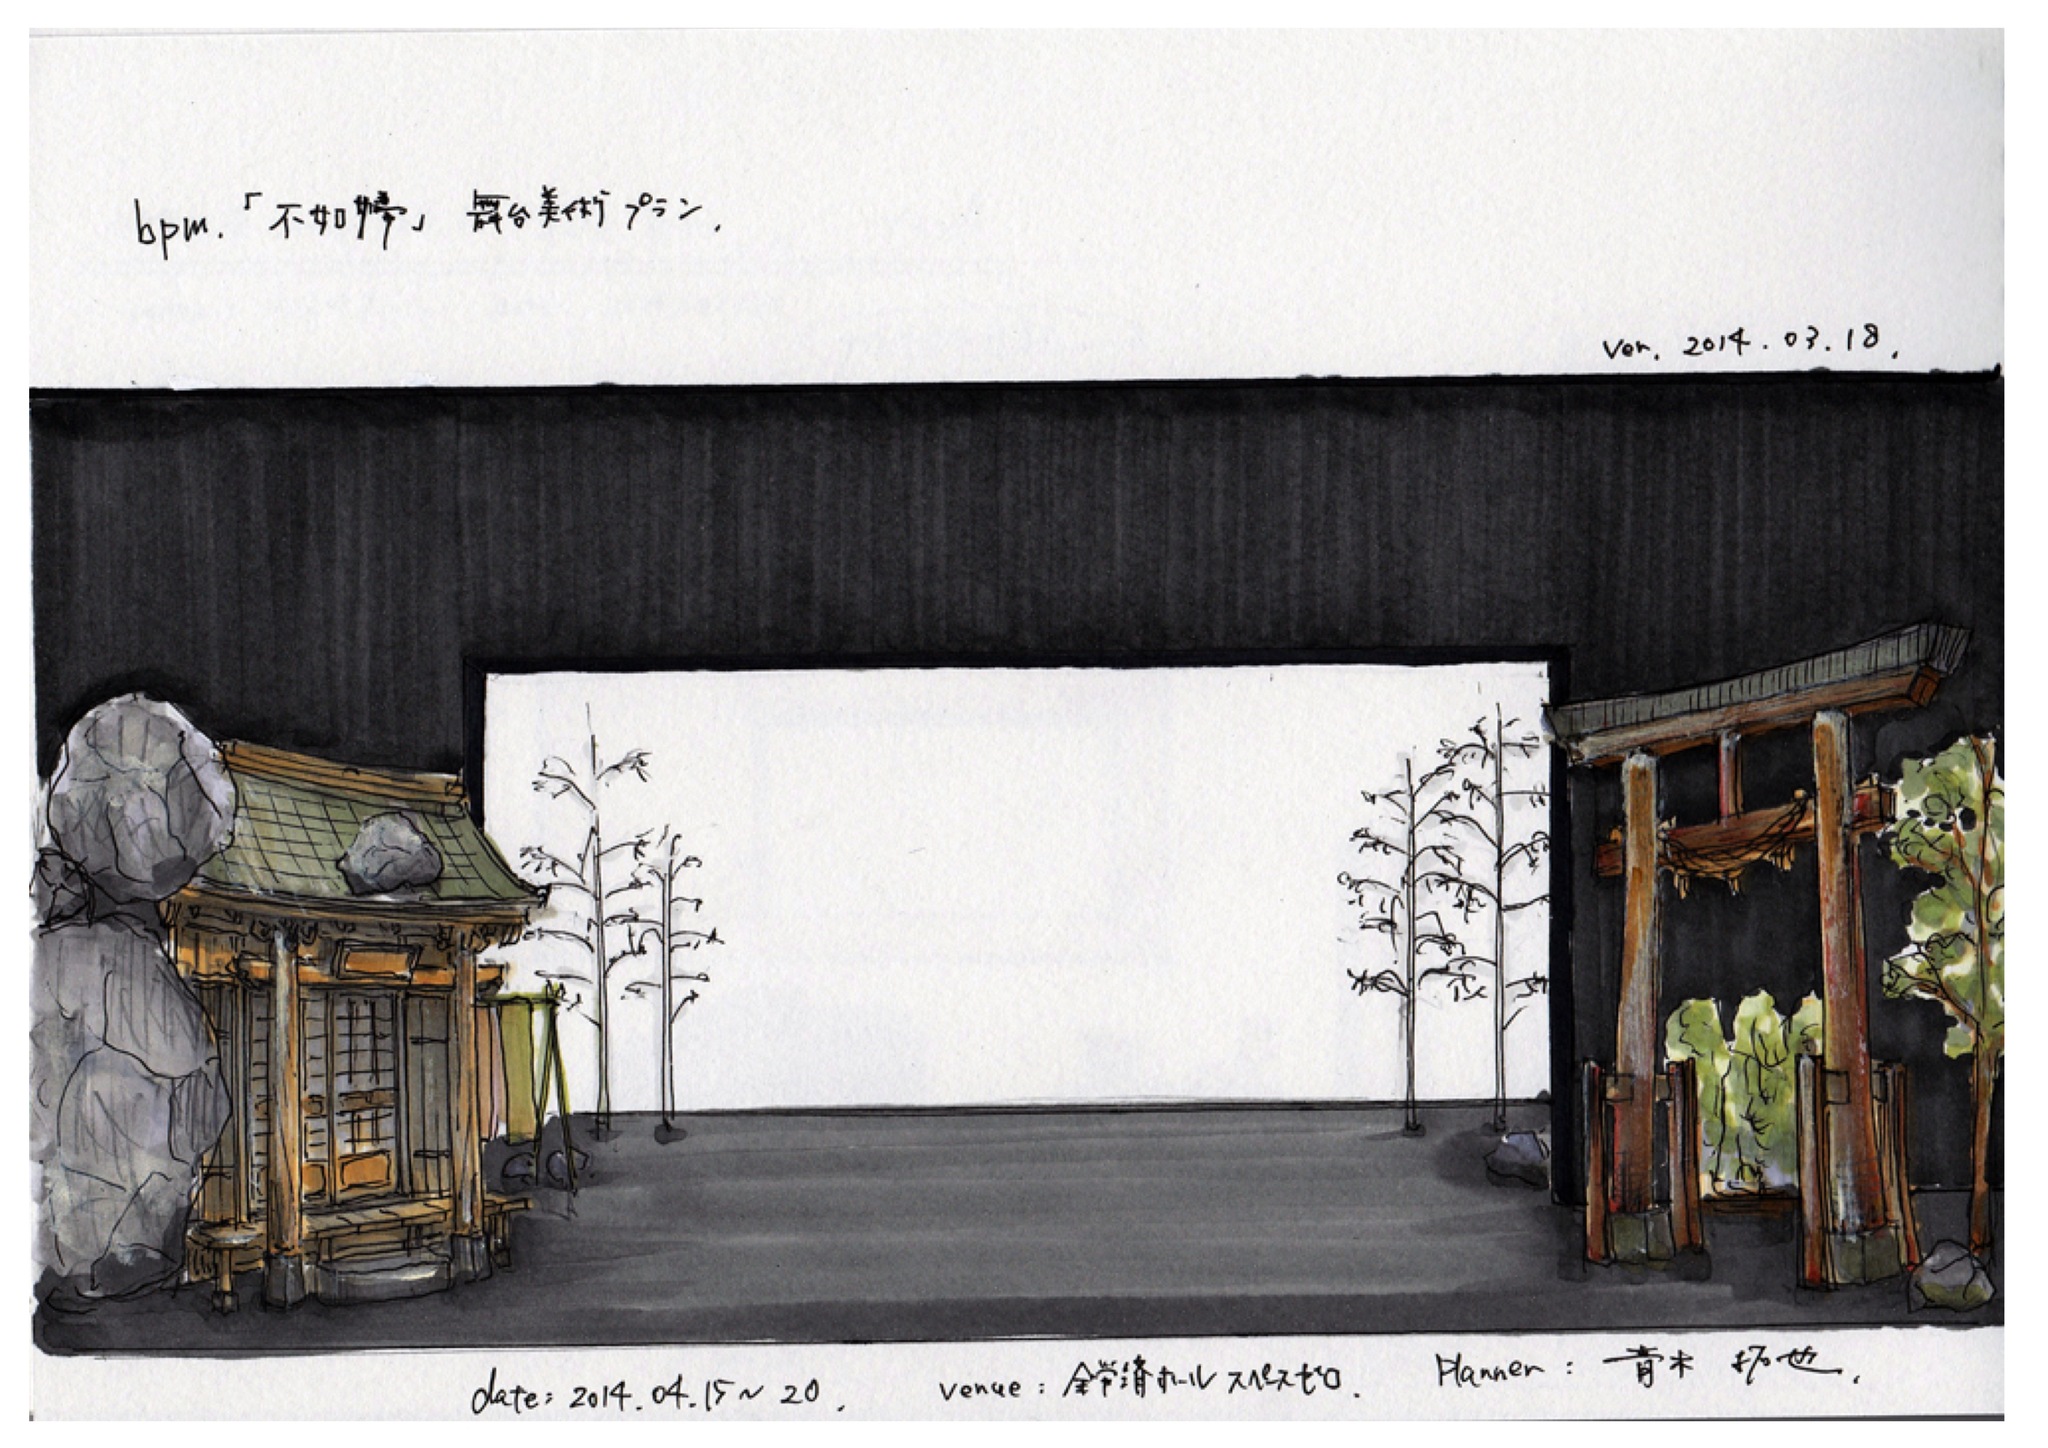 bpm.「不如帰」 舞台美術プラン.
ver. 2014.03.18.
date: 2014.04.15〜20.
venue: 全労済ホール スペースゼロ.
Planner: 青木 拓也.